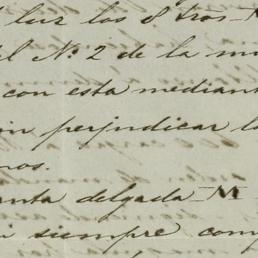 luz los 8 tros. M
el N.º 2 de la m
con esta mediant
in perjudicar l
nos.
anta delgada M
i siempre com